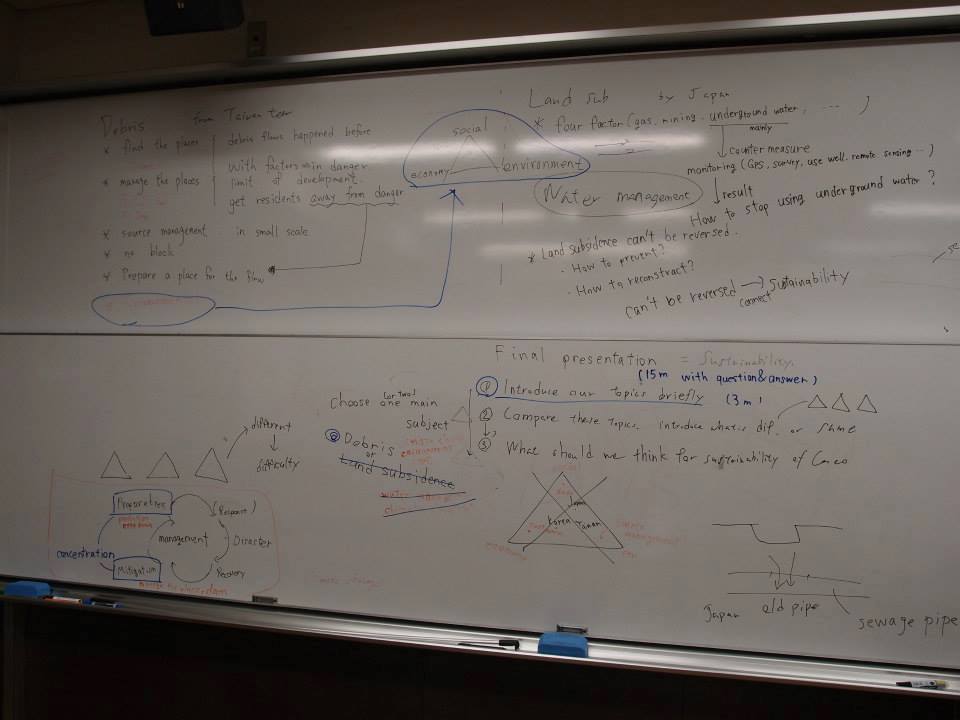 Debris from Taiwan team
* find the places debris flows happened before
with factors in danger
* manage the places limit of development.
get residents away from danger
* source management . in small scale
* no block
* Prepare a place for the flow
social
economy environment
Land sub by Japan
* four factor (gas, mining, underground water, ..... )
mainly
counter measure
monitoring (GPS, survey, use well, remote sensing ...)
result
Water management
How to stop using underground water ?
* Land subsidence can't be reversed.
· How to prevent?
· How to reconstruct?
can't be reversed → sustainability
connect
Final presentation = Sustainability.
(15m with question&answer)
① Introduce our topics briefly (3m)
② Compare these topics. introduce what is dif. or same
③ What should we think for sustainability of
Choose one main
(or two)
subject
Debris
or
Land subsidence
different
difficulty
Preparation
(Response)
management
Disaster
concentration
Mitigation
Recovery
Japan
Korea Taiwan
management
Japan old pipe
sewage pipe